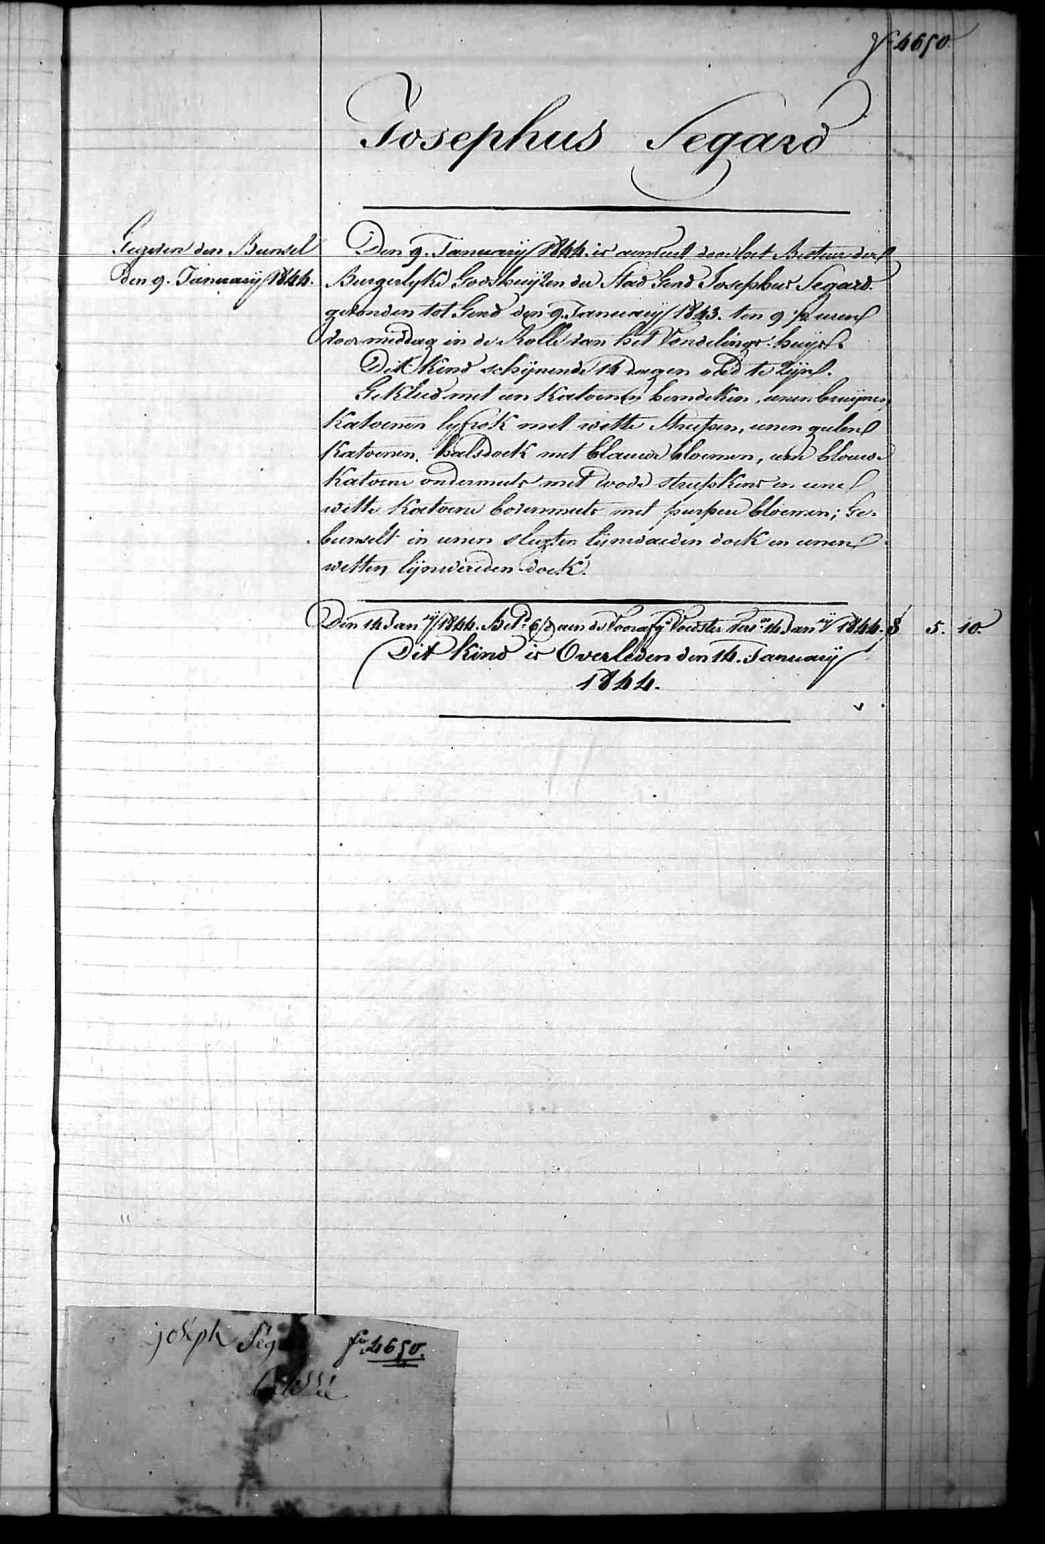 f° 4650
Josephus Segard
Gegeven den Bunsel
den 9. Januarij 1844.
Den 9. Januarij 1844. is aenveert door het Bestuer der
Burgerlyke Godshuijzen der Stad Gend Josephus Segard.
gevonden tot Gend den 9. Januarij 1843. ten 9 ½ uren
voormiddag in de Rolle van het Vondelings-huijs.
Dit Kind schijnende 14 dagen oud te Zijn.
Gekleed met een Katoenen hemdeken, eenen bruijnen
Katoenen lyfrok met witte streepen, eenen geelen
Katoenen halsdoek met blauwe bloemen, een blauwe
Katoene ondermuts met roode streepkens en eene
witte Katoene bovenmuts met purpere bloemen; Ge-
bunselt in eenen slegten lijnwaeden doek en eenen
witten lijnwaeden doek.
Den 14 Janrij 1844. Betd aen de Voorafge Voester 14 Janrij 1844. 5. 10.
Dit kind is Overleden den 14. Januarij
1844.
joseph Ség f° 4650.